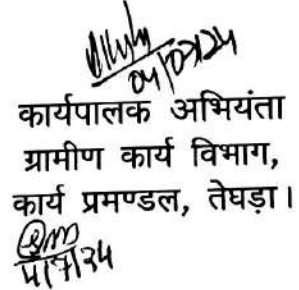 04/07/24
कार्यपालक अभियंता
ग्रामीण कार्य विभाग,
कार्य प्रमण्डल, तेघड़ा।
4/7/24